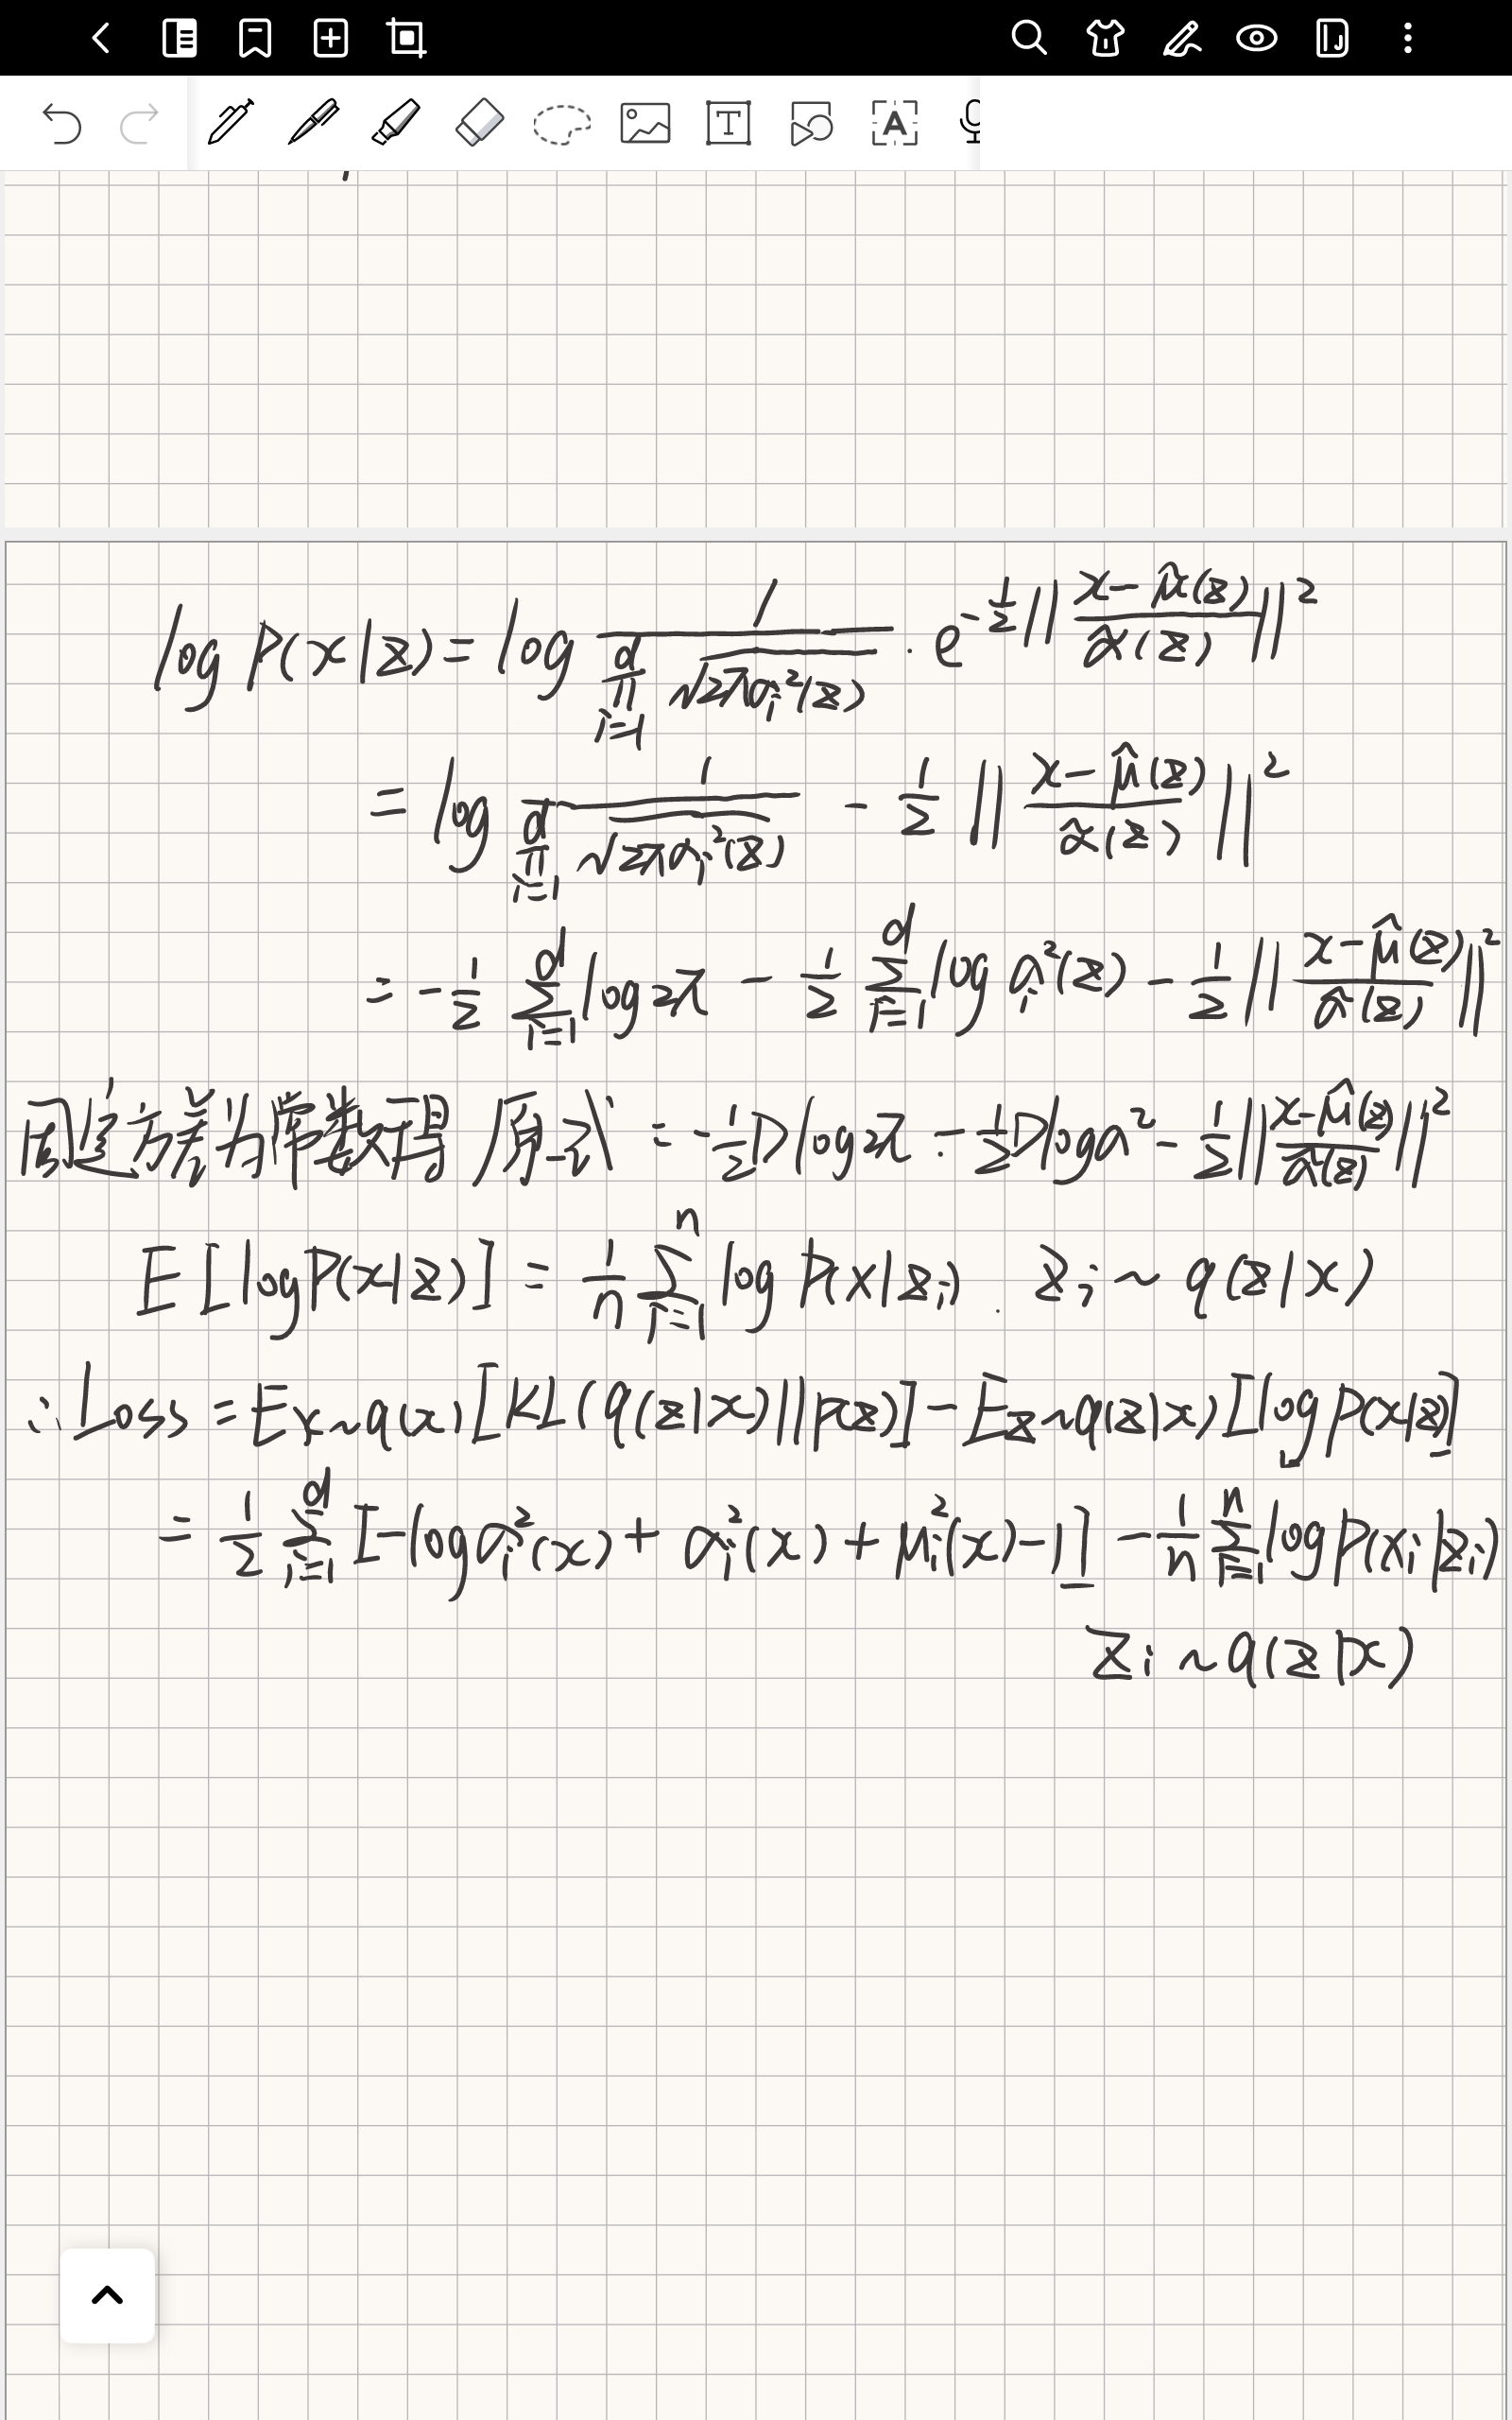 log P(x|z) = log 1/(∏_{i=1}^{d} √(2πσ_i²(z))) · e^{-1/2 ||(x-μ̂(z))/σ̂(z)||²}
= log 1/(∏_{i=1}^{d} √(2πσ_i²(z))) - 1/2 ||(x-μ̂(z))/σ̂(z)||²
= -1/2 ∑_{i=1}^{d} log 2π - 1/2 ∑_{i=1}^{d} log σ_i²(z) - 1/2 ||(x-μ̂(z))/σ̂(z)||²
固定方差为常数项 原式 = -1/2 D log 2π - 1/2 D log σ² - 1/2 ||(x-μ̂(z))/σ̂(z)||²
E[log P(x|z)] = 1/n ∑_{i=1}^{n} log P(x|z_i) . z_i ~ q(z|x)
∴ Loss = E_{x~q(x)}[KL(q(z|x)||p(z))] - E_{z~q(z|x)}[log p(x|z)]
= 1/2 ∑_{i=1}^{d} [-log σ_i²(x) + σ_i²(x) + μ_i²(x) - 1] - 1/n ∑_{i=1}^{n} log P(x_i|z_i)
z_i ~ q(z|x)